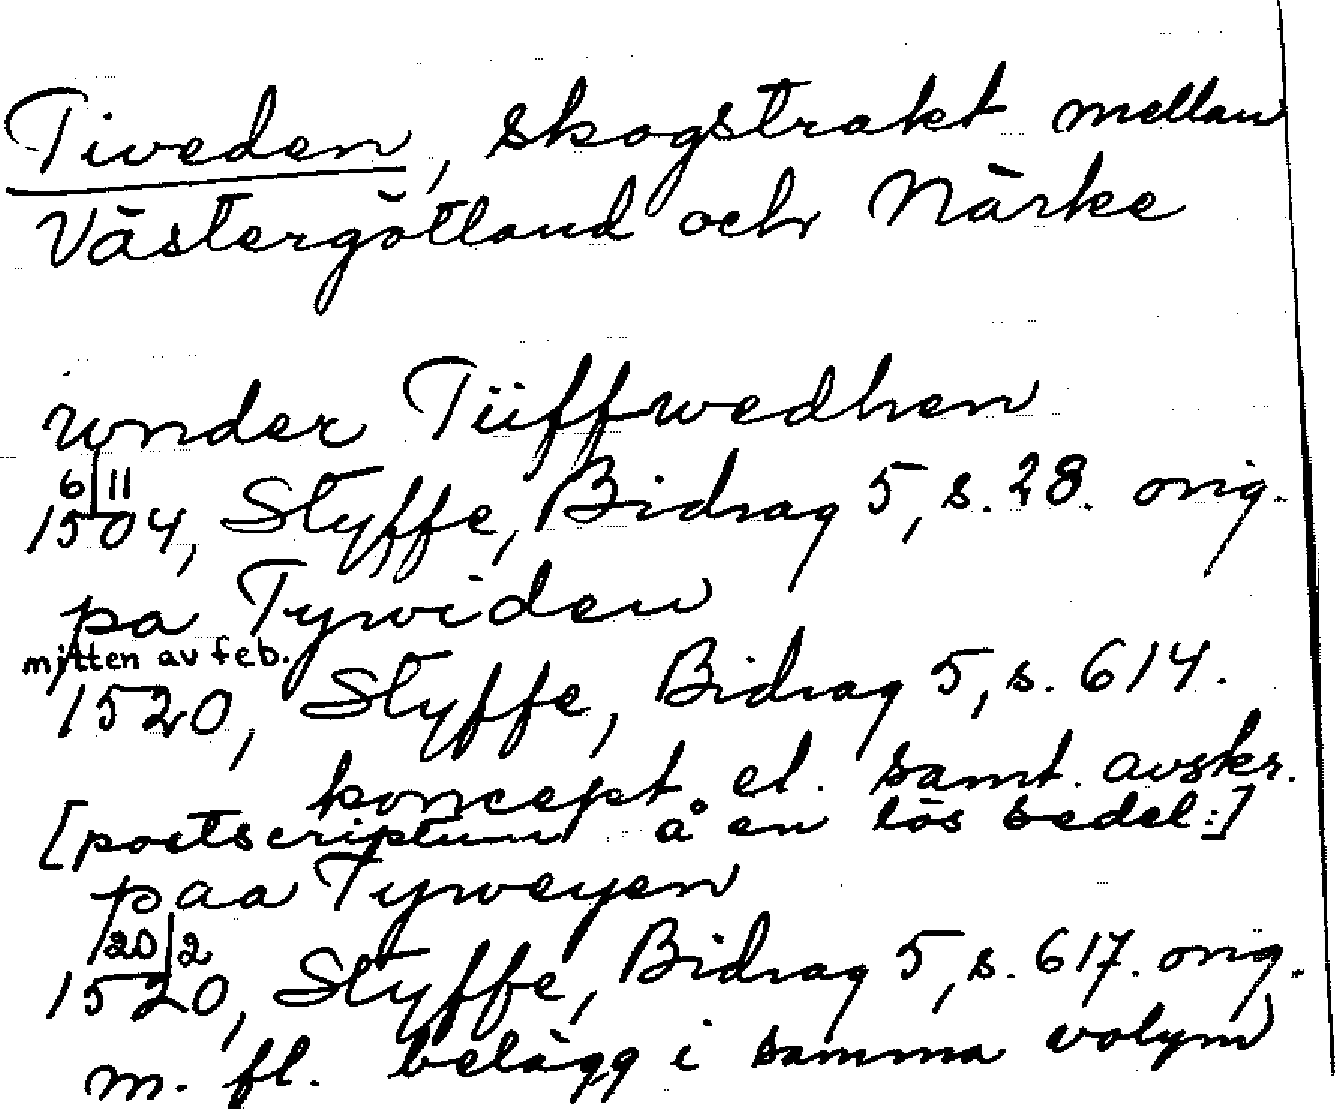 Tiveden, skogstrakt mellan
Västergötland och Närke
wnder Tiiffwedhen
6/11
1504, Styffe, Bidrag 5, s. 28. orig.
pa Tywiden
mitten av feb.
1520, Styffe, Bidrag 5, s. 614.
koncept el. samt. avskr.
[postscriptum å en lös sedel:]
paa Tyweyen
20/2
1520, Styffe, Bidrag 5, s. 617. orig.
m. fl. belägg i samma volym